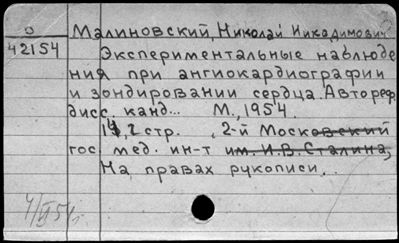 О
Малиновский, Николай Никадимович
42154
Экспериментальные наблюде
ния при ангиокардиографии
и зондировании сердца. Автореф.
дисс. канд... М., 1954.
стр. , 2-й Московский
гос. мед. ин-т им. И.В. Сталина,
На правах рукописи.